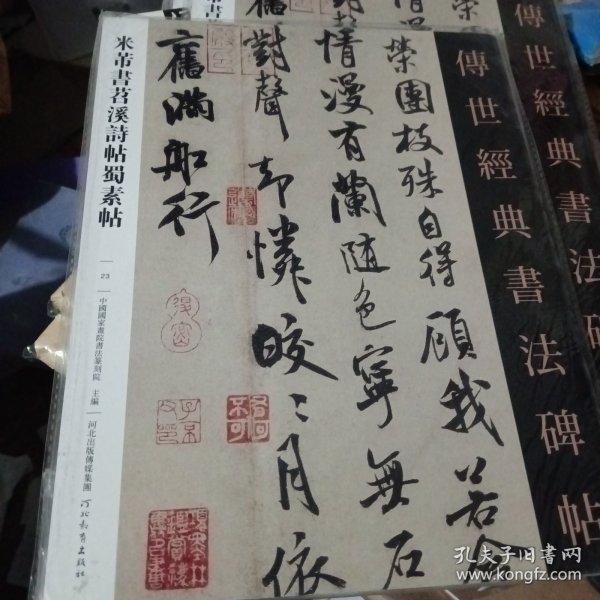 米芾書苕溪詩帖蜀素帖
23
中國國家畫院書法篆刻院 主編
河北出版傳媒集團
河北教育出版社
榮團枝殊自得顧我若合
情漫有蘭隨色寧無石
對聲却憐皎〻月依
舊滿船行
傳世經典書法碑帖
傳世經典書法碑帖
孔夫子旧书网
www.kongfz.com